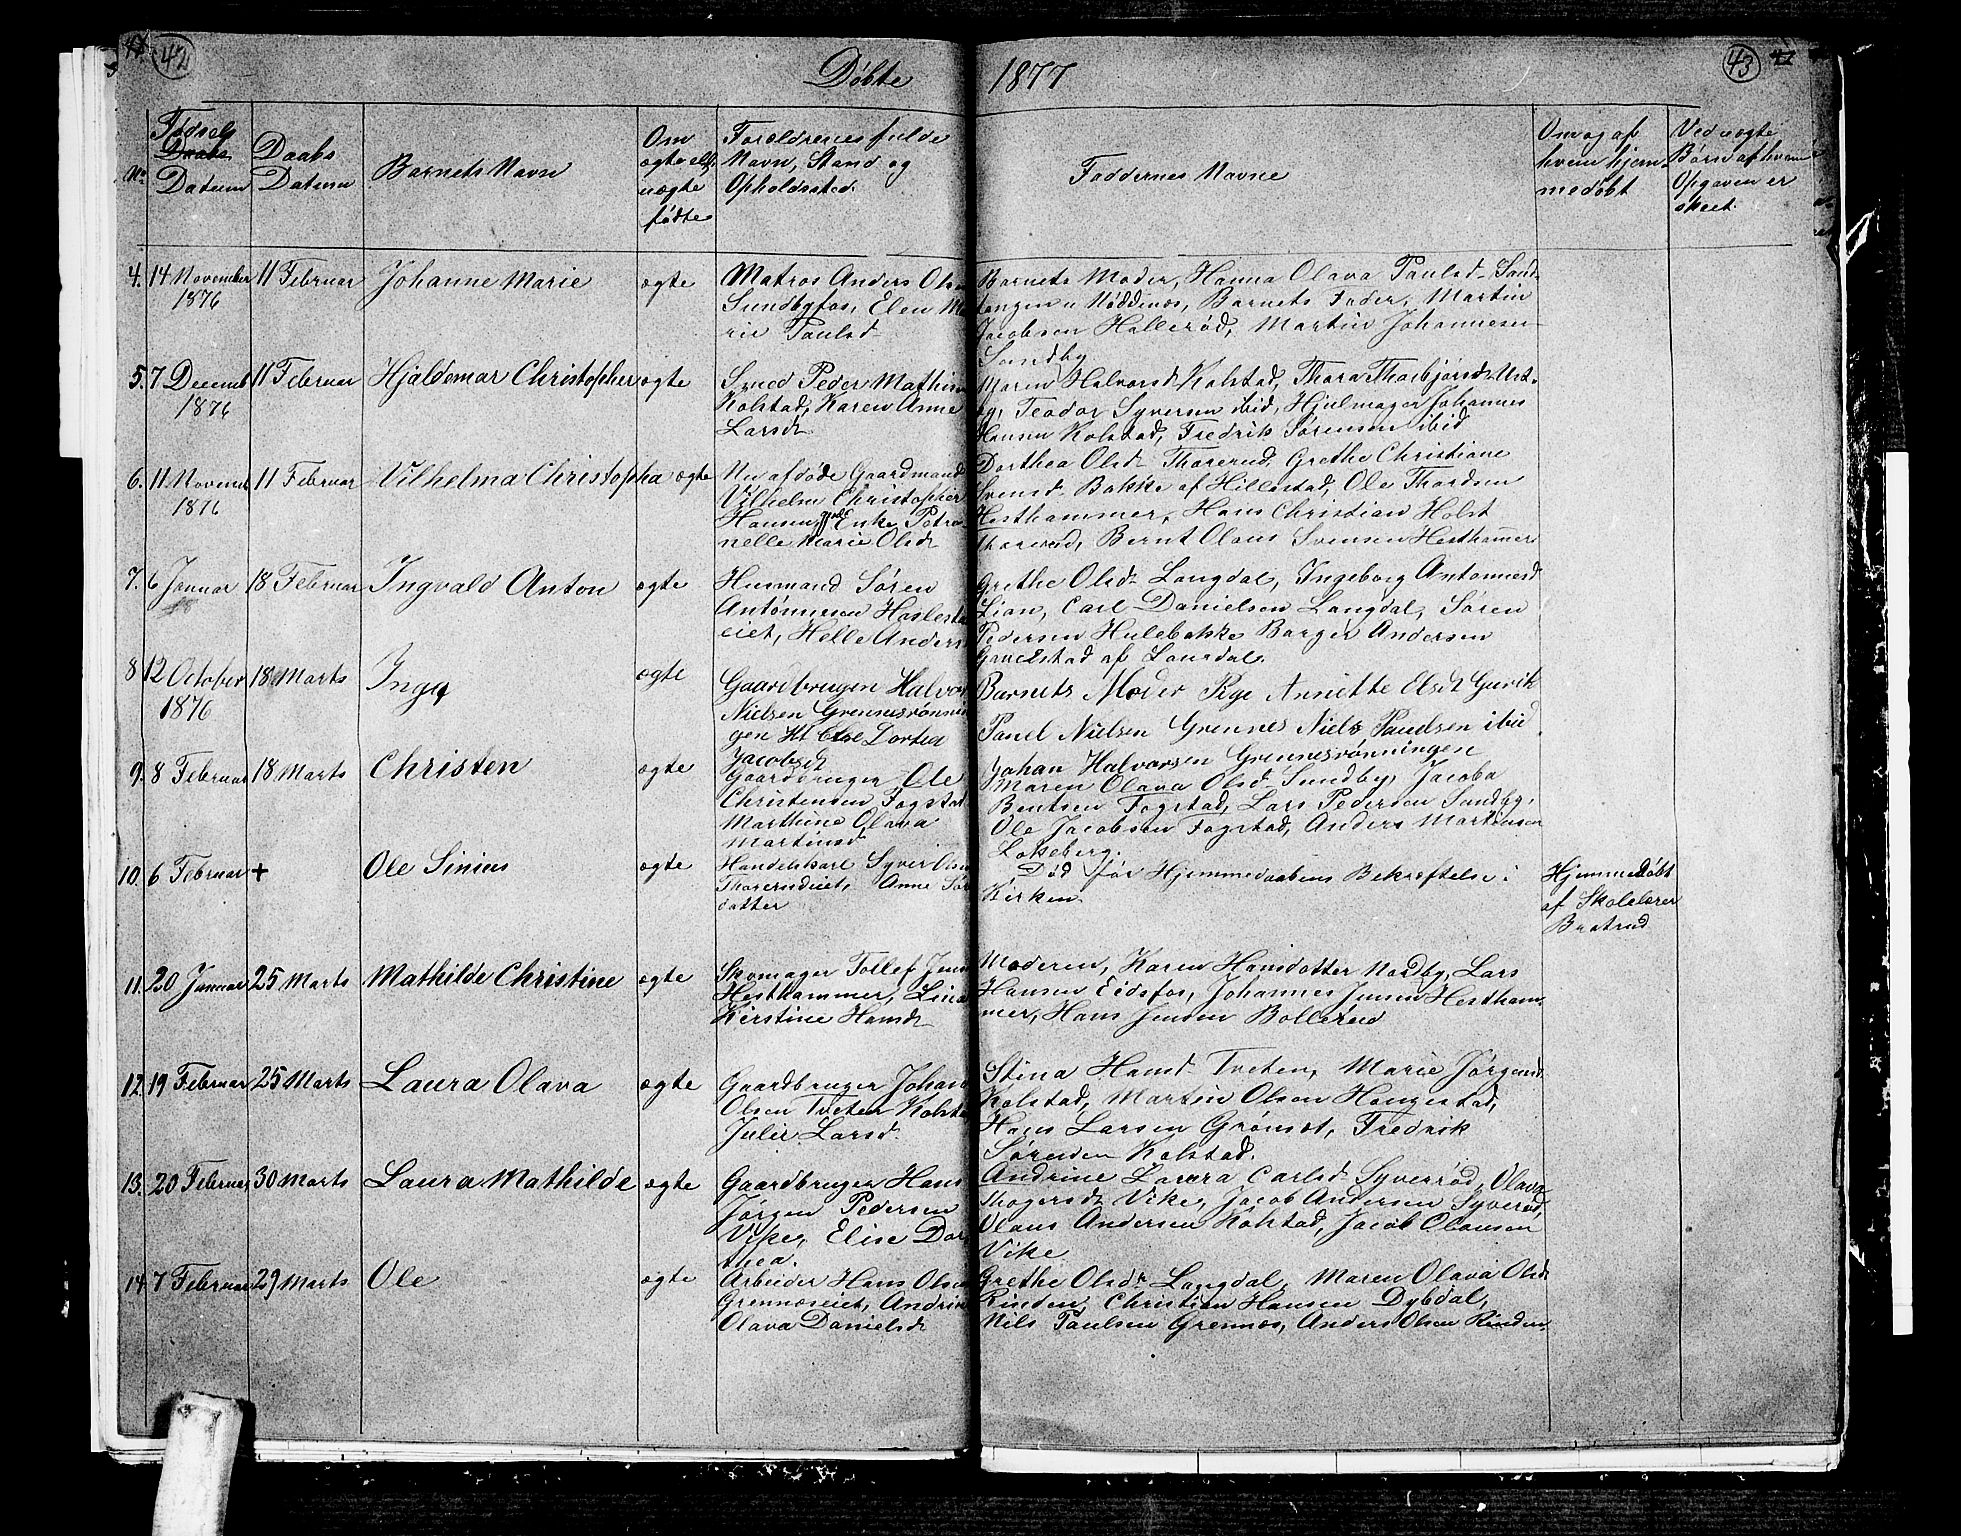 42
43
Døbte 1877
No
Fødsels Daabs Datum
Daabs Datum
Barnets Navn
Om ægte eller uægte fødte
Forældrenes fulde Navn, Stand og Opholdssted.
Faddernes Navne
Om og af hvem hjemmedøbt
Ved uægte Børn af hvem Opgaven er skeet.
4. 14 November 1876
11 Februar
Johanne Marie
ægte
Matros Anders Olsen
Sundbyfos, Elen Ma
rie Paulsd
Barnets Moder, Hanna Olava Paulsd Sand
tangen u Nøddenes, Barnets Fader, Martin
Jacobsen Hallerød, Martin Johannesen
Sundby
5. 7 Decemb 1876
11 Februar
Hjaldemar Christopher
ægte
Smed Peder Mathis
Kolstad, Karen Anne
Larsd
Maren Halvorsd Kolstad, Thara Thorbjørsd
Teodor Syversen ibid, Hjulmager Johannes
Hansen Kolstad, Fredrik Sørensen ibid
6. 11 Novemb 1876
11 Februar
Vilhelma Christopha
ægte
Nu afdøde Gaardmand
Vilhelm Christopher
Hansen, Enke Petro
nelle Marie Olsd
Dorthea Olsd Thorerud, Grethe Christiane
Svensd Bakke af Hillestad, Ole Thordsen
Hesthammer, Hans Christian Holst
Thorerud, Bernt Olaus Svensen Hesthammer
7. 6 Januar
18 Februar
Ingvald Anton
ægte
Husmand Søren
Antonnesen Haslestad
eiet, Helle Anders
Grethe Olsd Langdal, Ingeborg Antonnesd
Lian, Carl Danielsen Langdal, Søren
Pedersen Hulebakke Borger Andersen
Gavelstad af Langdal.
8 12 October 1876
18 Marts
Inga
ægte
Gaardbrugen Halvor
Nielsen Grennesrønnin
gen Else Dortea
Jacobsd
Barnets Moder Pige Annette Elsd
Paul Nielsen Grennes Niels Paulsen ibid
Johan Halvorsen Grennesrønningen
9. 8 Februar
18 Marts
Christen
ægte
Gaardbruger Ole
Christensen Fogstad
Marthine Olava
Martinsd
Maren Olava Olsd Sundby, Jacoba
Bentsen Fogstad, Lars Pedersen Sundby,
Ole Jacobsen Fogstad, Anders Martinsen
Løkeberg.
10. 6 Februar
+
Ole Sinius
ægte
Handelskarl Syver Olsen
Thorerudeiet, Anne
datter
Død før Hjemmedaabens Bekræftelse i
Kirken
Hjemmedøbt
af Skolelærer
Bratrud
11. 20 Januar
25 Marts
Mathilde Christine
ægte
Skomager Tollef Jens
Hesthammer, Lina
Kirstine Hansd
Moderen, Karen Hansdatter Nordby, Lars
Hansen Eidsfos, Johannes Jensen Hestham
mer, Hans Jensen Bollerud
12. 19 Februar
25 Marts
Laura Olava
ægte
Gaardbruger Johan
Olsen Treten Kolstad
Julie Larsd
Stina Hansd Treten, Marie Jørgensd
Kolstad, Martin Olsen Haugestad,
Hans Larsen Grønset, Fredrik
Sørensen Kolstad.
13. 20 Februar
30 Marts
Laura Mathilde
ægte
Gaardbruger Hans
Jørgen Pedersen
Vike, Elise Dor
thea.
Andrine Laura Carlsd Syverød, Olava
Thogersd Vike, Jacob Andersen Syverød,
Olaus Andersen Kolstad, Jacob Olausen
Vike
14 7 Februar
29 Marts
Ole
ægte
Arbeider Hans Olsen
Grennæseiet, Andrine
Olava Danielsd
Grethe Olsd Langdal, Maren Olava Olsd
Rinden, Christian Hansen Dybdal,
Nils Paulsen Grennes, Anders Olsen Rinden